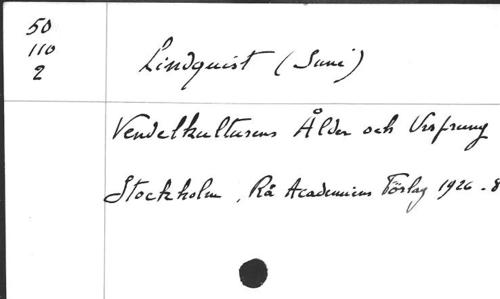 50
110
2
Lindquist (Suni)
Vendelkulturens Ålder och Ursprung
Stockholm, Kå Academiens Förlag 1926 - 8